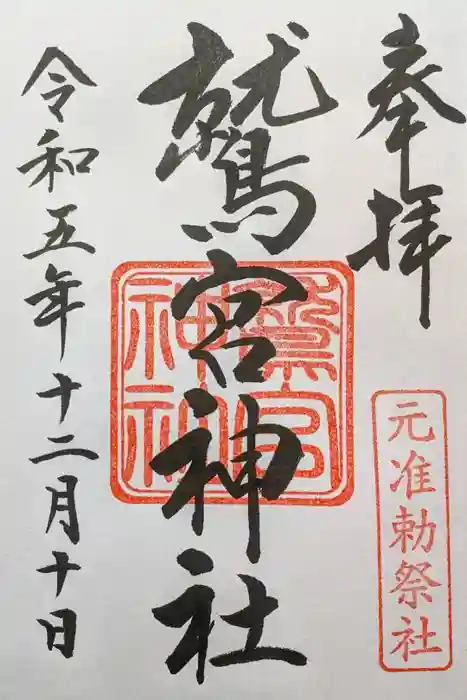 奉拝
元准勅祭社
鷲宮神社
鷲宮神社
令和五年十二月十日